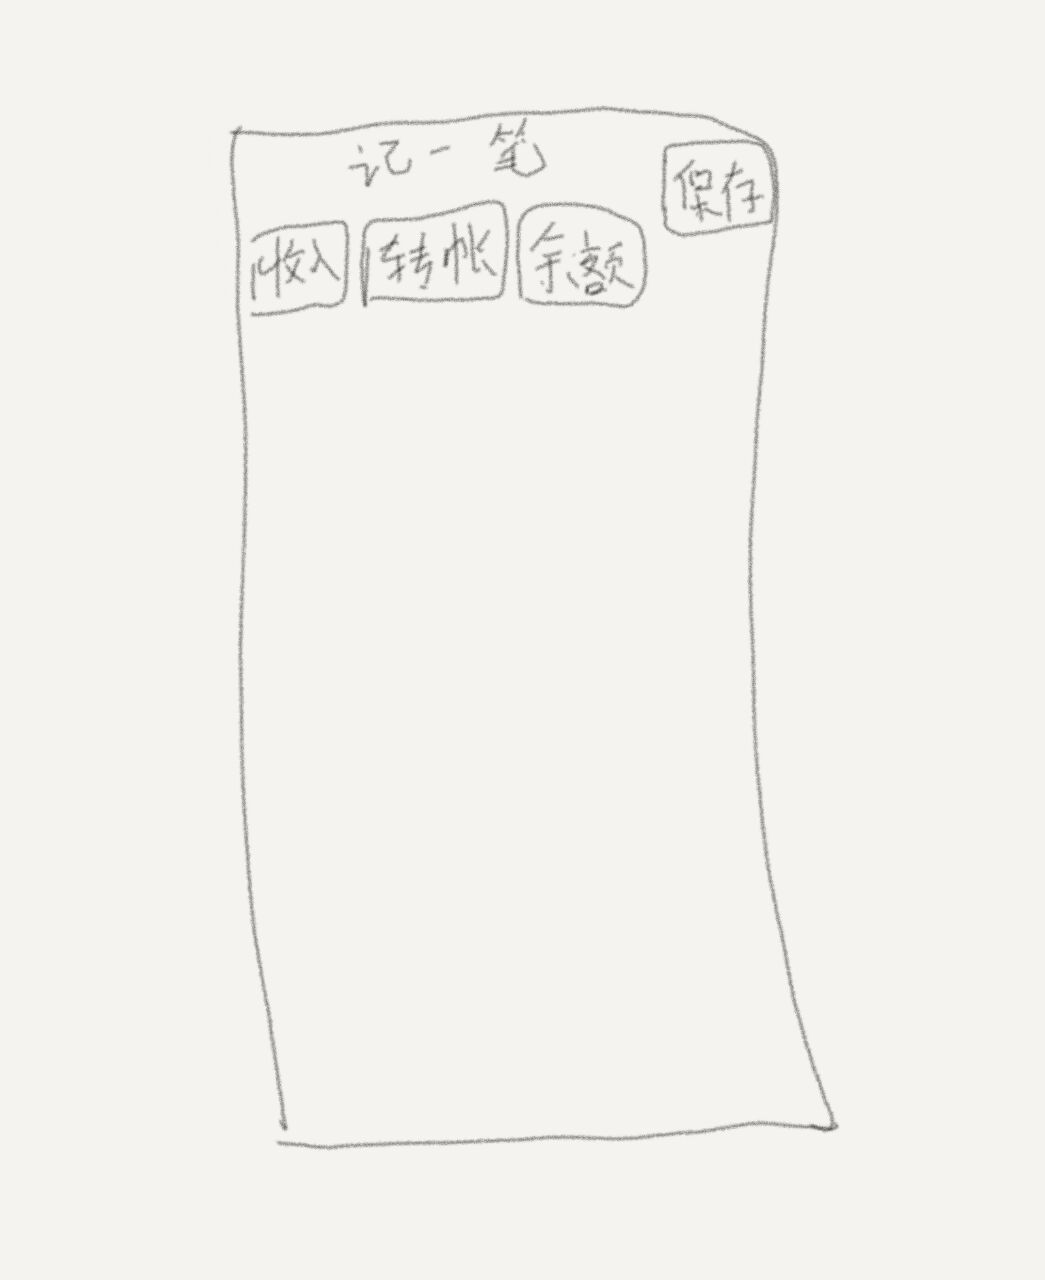 记一笔
保存
收入 转帐 余额